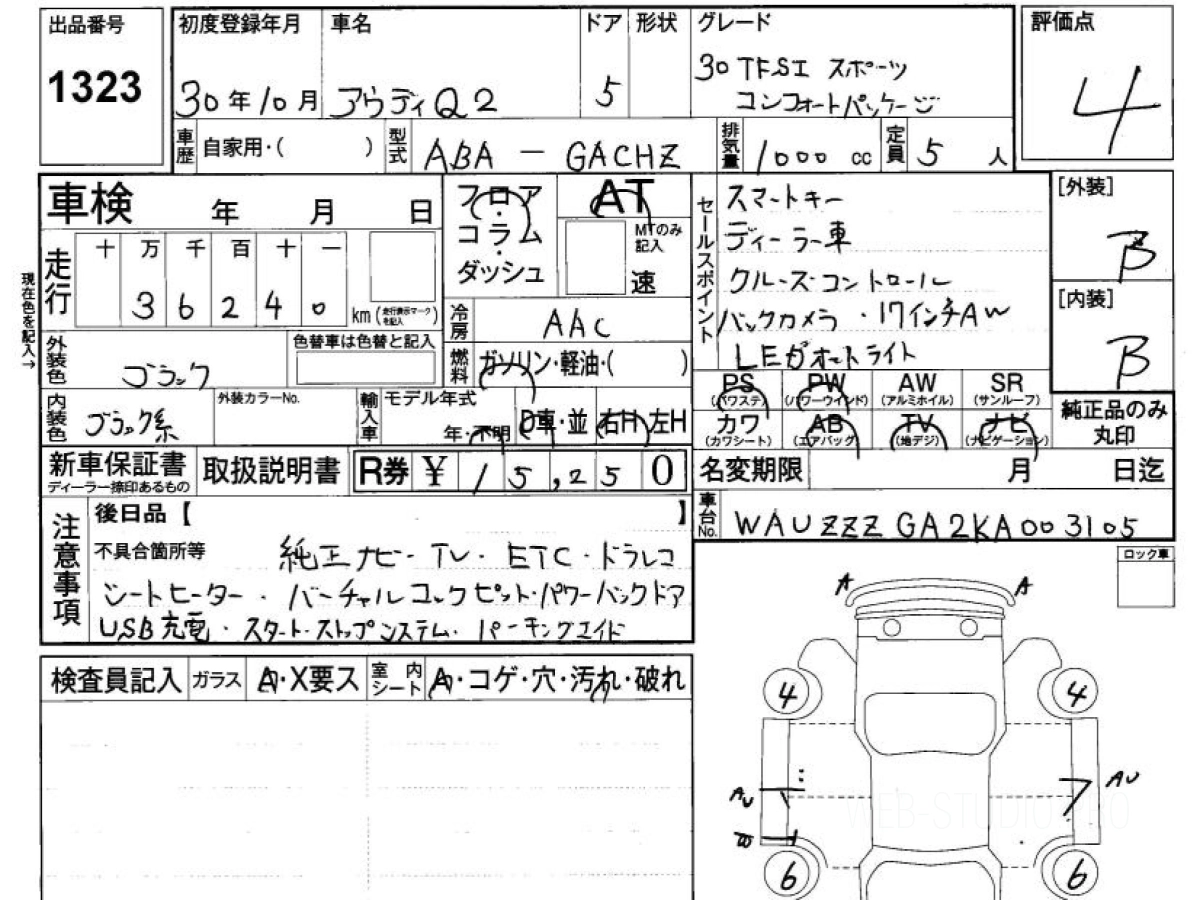 出品番号
1323
初度登録年月
30年10月
車名
アウディQ2
ドア
5
形状
グレード
30 TFSI スポーツ
コンフォートパッケージ
評価点
4
車歴
自家用・( )
型式
ABA - GACHZ
排気量
1000 cc
定員
5 人
車検 年 月 日
フロア・コラム・ダッシュ
AT
MTのみ記入
速
セールスポイント
スマートキー
ディーラー車
クルーズコントロール
バックカメラ・17インチAW
LEDオートライト
[外装]
B
[内装]
B
現在色を記入→
走行
十 万 千 百 十 一
3 6 2 4 0
km(走行表示マークを記入)
冷房
AAC
外装色
ブラック
色替車は色替と記入
燃料
ガソリン・軽油・( )
内装色
ブラック系
外装カラーNo.
輸入車
モデル年式
年・不明
D車・並
右H 左H
PS
(パワステ)
PW
(パワーウインド)
AW
(アルミホイル)
SR
(サンルーフ)
カワ
(カワシート)
AB
(エアバッグ)
TV
(地デジ)
ナビ
(ナビゲーション)
純正品のみ
丸印
新車保証書
ディーラー捺印あるもの
取扱説明書
R券 ¥ 15,250
名変期限 月 日迄
車台No.
WAUZZZGA2KA003105
注意事項
後日品【 】
不具合箇所等
純正ナビ・TV・ETC・ドラレコ
シートヒーター・バーチャルコックピット・パワーバックドア
USB充電・スタート・ストップシステム・パーキングエイド
ロック車
検査員記入
ガラス
A・X要ス
室内シート
A・コゲ・穴・汚れ・破れ
A
A
4
4
AU
AU
6
6
WEB-STUDIO.PRO